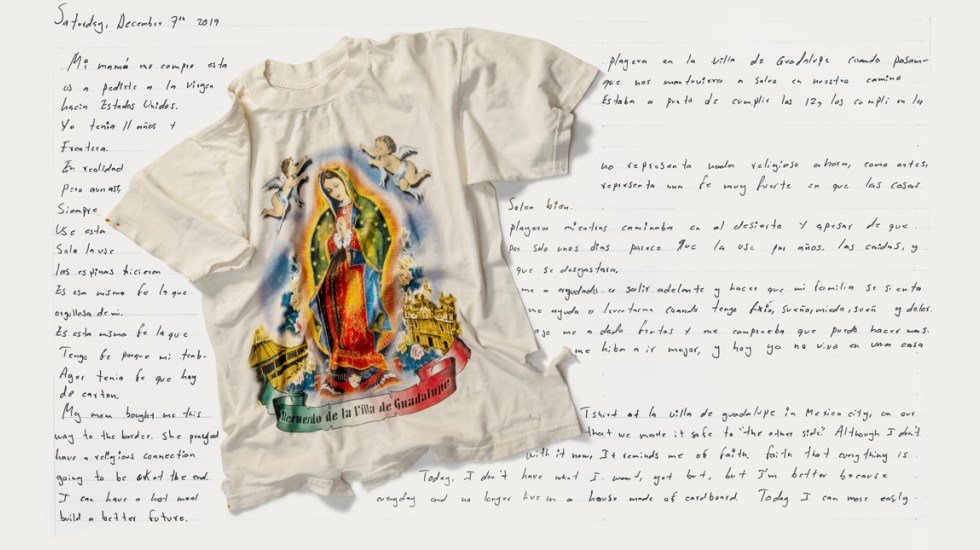 Saturday, December 7th 2019
Mi mamá me compro esta playera en la villa de Guadalupe cuando pasam-
os a pedirle a la virgen que nos mantuviera a salvo en nuestro camino
hacia Estados Unidos. Estaba a punto de cumplir los 12 y los cumpli en la
Yo tenia 11 años y
Frontera.
En realidad no representa nada religioso ahora, como antes,
Pero aunasi, representa una fe muy fuerte en que las cosas
Siempre Salen bien.
Use esta playera mientras caminaba en el desierto y apesar de que
Solo la use por solo unos dias parece que la use por años. las caidas, y
las espinas hicieron que se desgastara.
Es esa misma fe la que me a ayudado a salir adelante y hacer que mi familia se sienta
orgullosa de mi. me ayudo a levantarme cuando tengo frio, sueño, miedo, y dolor.
Es esta misma fe la que me a dado frutos y me comprueba que puedo hacer mas.
Tengo fe porque mi trab- ajo
Ayer tenia fe que hoy me hiba a ir mejor, y hoy ya no vivo en una casa
de carton.
My mom bought me this Tshirt at la villa de guadalupe in Mexico city, on our
way to the border. She prayed that we made it safe to "the other side." Although I don't
have a religious connection with it now, It reminds me of faith. faith that everything is
going to be ok at the end. Today, I don't have what I want, yet but, but I'm better because
I can have a hot meal everyday and no longer live in a house made of cardboard. Today I can more easily
build a better future.
Recuerdo de la Villa de Guadalupe